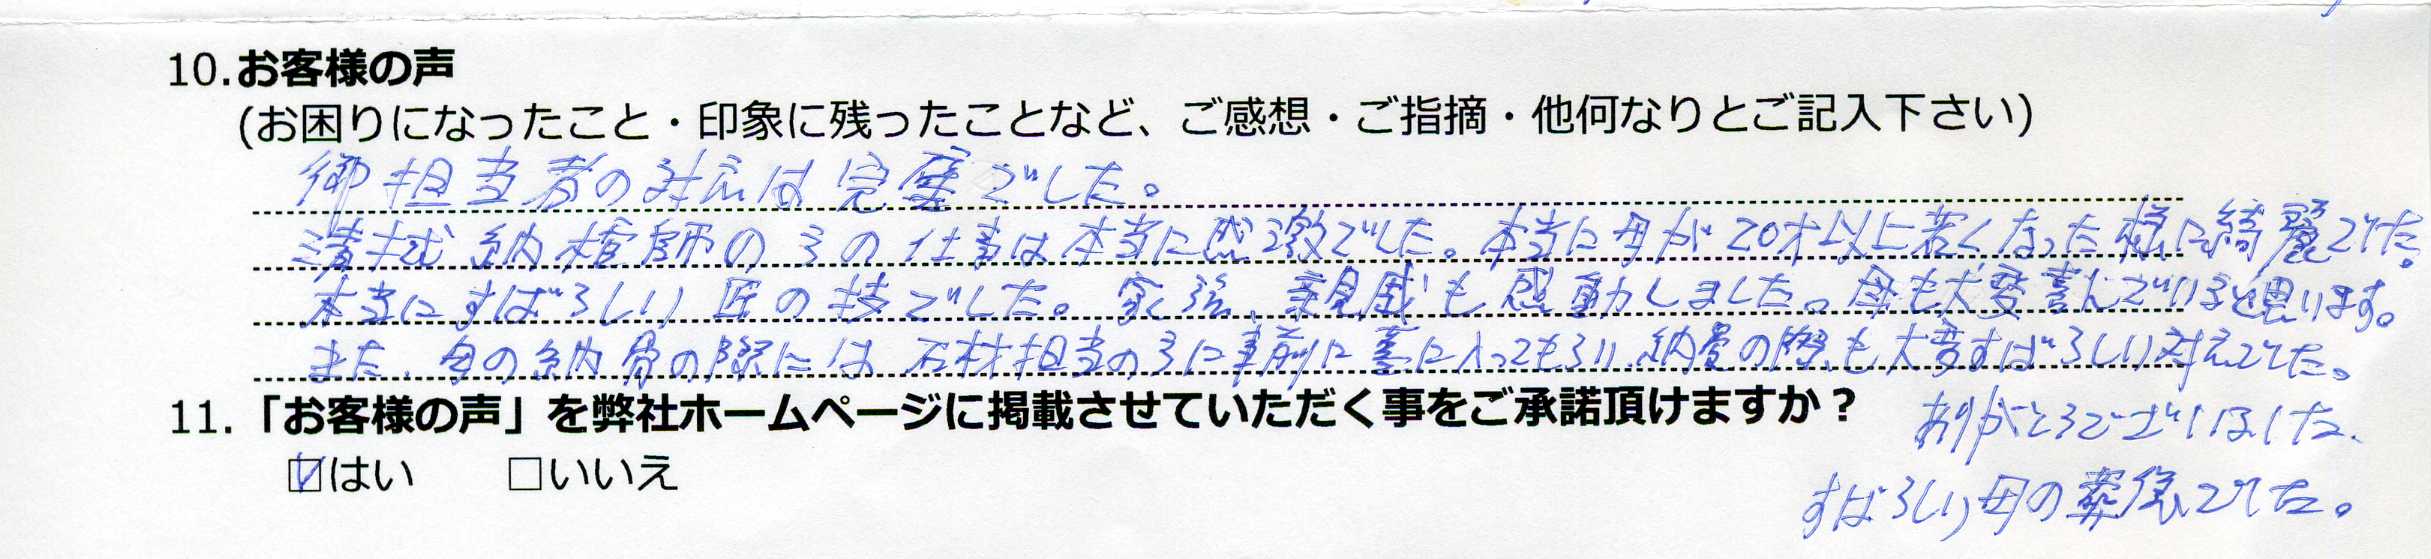 10.お客様の声
(お困りになったこと・印象に残ったことなど、ご感想・ご指摘・他何なりとご記入下さい)
御担当者の対応は完璧でした。
清拭納棺師の方の仕事は本当に感激でした。本当に母が20才以上若くなった様に綺麗でした。
本当にすばらしい匠の技でした。家族、親戚も感動しました。母も大変喜んでいると思います。
また、母の納骨の際には石材担当の方に事前に墓に入ってもらい、納骨の際も大変すばらしい対応でした。
11.「お客様の声」を弊社ホームページに掲載させていただく事をご承諾頂けますか？
ありがとうございました、
☑はい □いいえ
すばらしい母の葬儀でした。